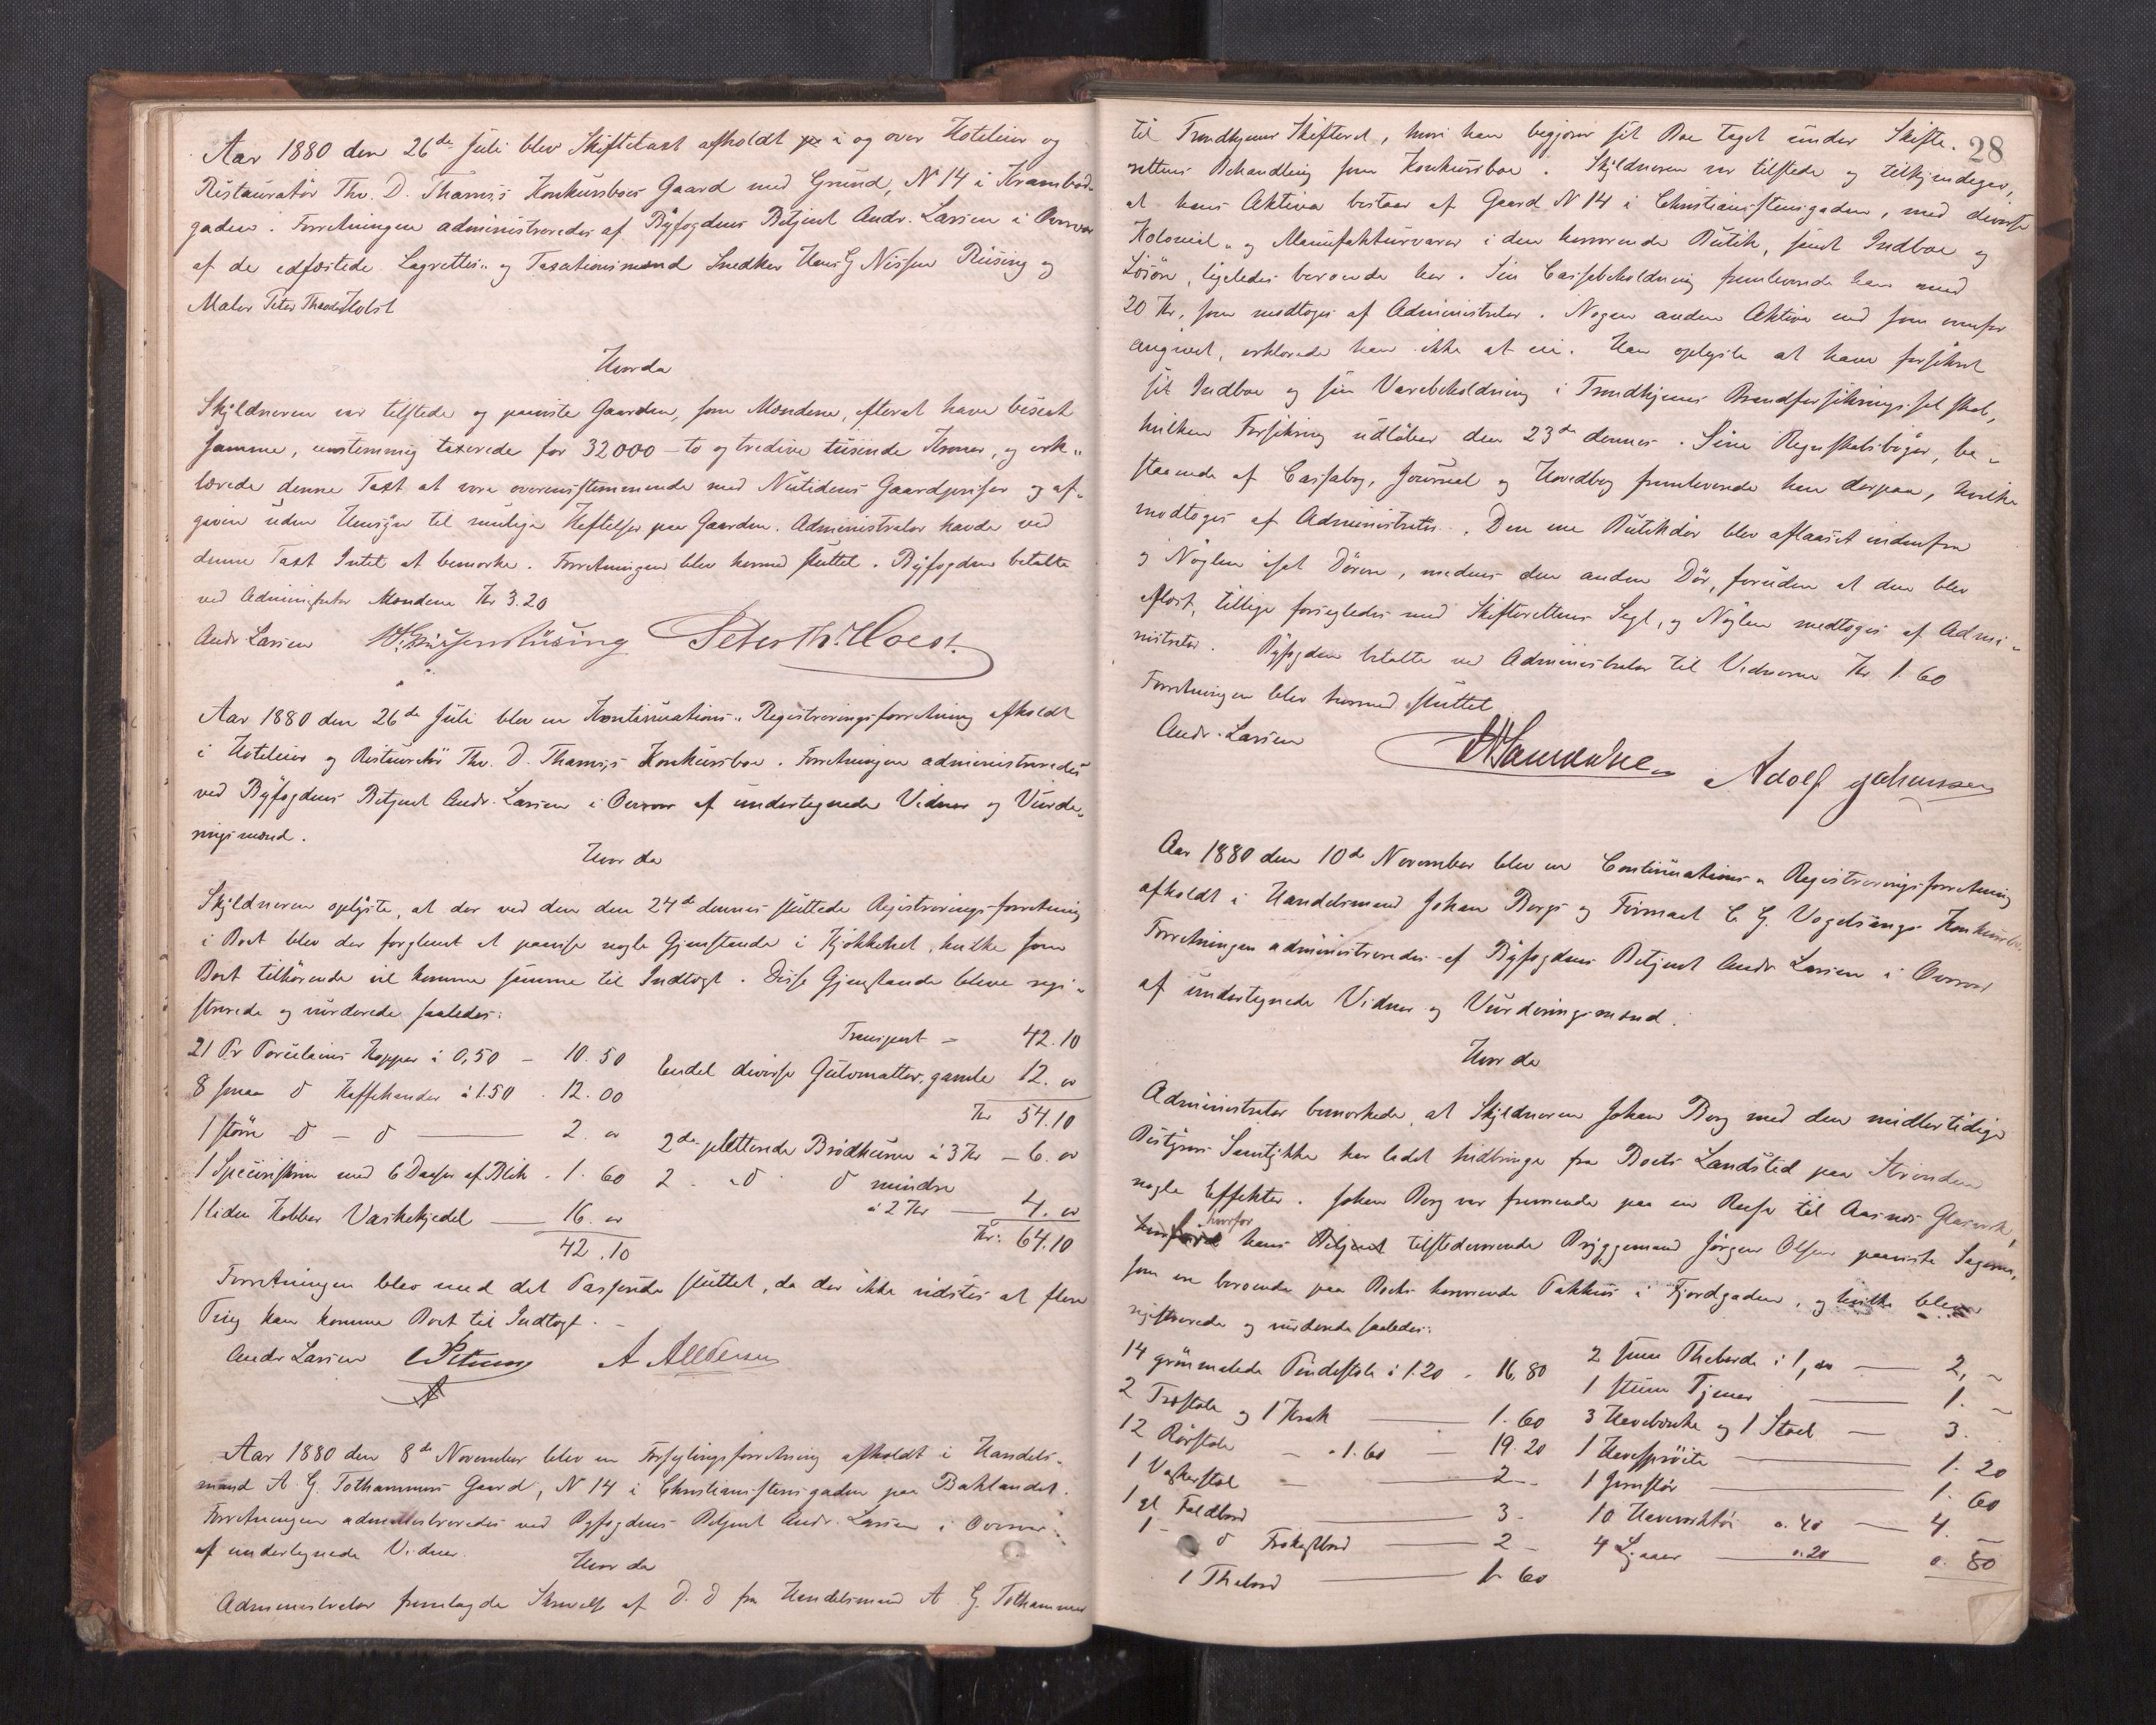 Aar 1880 den 26de Juli blev Skiftetaxt afholdt på i og over Hoteleier og
Restauratör Thv. D. Thams's Konkursboes Gaard med Grund, N 14 i Krambod-
gaden. Forretningen administreredes af Byfogdens Betjent Andr. Larsen i Overvær
af de edfæstede Lagrettes- og Taxationsmænd Snedker Hans G Nissen Rüsing og
Maler Peter Theodor Holst
Hvorda
Skyldneren var tilstede og paaviste Gaarden, som Mændene, efterat have beseet
samme, enstemmig taxerede for 32000 - to og tredive tusinde Kroner, og erk-
lærede denne Taxt at være overensstemmende med Nutidens Gaardpriser og af-
given uden Hensyn til mulige Heftelser paa Gaarden. Administrator havde ved
denne Taxt Intet at bemærke. Forretningen blev hermed sluttet. Byfogden betalte
ved Administrator Mændene Kr 3.20
Andr Larsen H. G. Nissen Rüsing Peter Th. Holst.
Aar 1880 den 26de Juli blev en Kontinuations- Registreringsforretning afholdt
i Hoteleier og Restauratör Thv. D. Thams's Konkursboe. Forretningen administreredes
ved Byfogdens Betjent Andr. Larsen i Overvær af undertegnede Vidner og Vurde-
ringsmænd.
Hvor da
Skyldneren oplyste, at der ved den den 24de dennes sluttede Registreringsforretning
i Boet blev der forglemt at paavise nogle Gjenstande i Kjökkenet, hvilke som
Boet tilhörende vil komme samme til Indtægt. Disse Gjenstande bleve regi-
strerede og vurderede saaledes:
21 Pr Porcelains Kopper à 0,50 - 10.50
8 smaa d Kaffekander à 1.50 . 12.00
1 större d - d 2. "
1 Specieriskrin med 6 Daaser af Blik - 1. 60
1 liden Kobber Vaskekjedel 16. "
42.10
Transport - 42.10
Endel diverse Gulvmatter, gamle 12. "
Kr 54.10
2de pletterede Brödkurve à 3 Kr - 6. "
2 " d d mindre
à 2 Kr 4. "
Kr: 64.10
Forretningen blev med det Passerede sluttet, da der ikke vidstes at flere
Ting kan komme Boet til Indtægt. -
Andr Larsen A Andersen
Aar 1880 den 8de November blev en Forseglingsforretning afholdt i Handels-
mand A. G. Tothammers Gaard, N 14 i Christianstensgaden paa Baklandet.
Forretningen administreredes ved Byfogdens Betjent Andr. Larsen i Overvær
af undertegnede Vidner.
Hvor da
Administrator fremlagde Skrivelse af D. D fra Handelsmand A. G. Tothammer
28
til Trondhjems Skifteret, hvori han begjærer sit Boe taget under Skifte-
rettens Behandling som Konkursboe. Skyldneren var tilstede og tilkjendegav,
at hans Aktiva bestaar af Gaard N 14 i Christianstensgaden, med diverse
Kolonial- og Manufakturvarer i den herværende Butik, samt Indboe og
Lösöre, ligeledes beroende her. Sin Cassebeholdning fremleverede han med
20 Kr, som modtoges af Administrator. Nogen anden Aktiva end som ovenfor
angivet, erklærede han ikke at eie. Han oplyste at have forsikret
sit Indboe og sin Varebeholdning i Trondhjems Brandforsikringsselskab,
hvilken Forsikring udlöber den 23de dennes. Sine Regnskabsböger, be-
staaende af Cassabog, Journal og Hovedbog fremleverede han derpaa, hvilke
modtoges af Administrator. Den ene Butikdör blev aflaaset indenfra
og Nöglen isat Dören, medens den anden Dör, foruden at den blev
aflaast, tillige forsegledes med Skifterettens Segl, og Nöglen modtoges af Admi-
nistrator. Byfogden betalte ved Administrator til Vidnerne Kr 1.60
Forretningen blev hermed sluttet
Andr. Larsen Adolf Johanssen
Aar 1880 den 10de November blev en Continuations- Registreringsforretning
afholdt i Handelsmand Johan Borgs og Firmaet C. G. Vogelsangs Konkursbo.
Forretningen administreredes af Byfogdens Betjent Andr Larsen i Overvær
af undertegnede Vidner og Vurderingsmænd.
Hvor da
Administrator bemærkede, at Skyldneren Johan Borg med den midlertidige
Bestyrers Samtykke har ladet hidbringe fra Boets Landsted paa Strinden
nogle Effekter. Johan Borg var fraværende paa en Reise til Aasnes Glasværk,
hvorfor hans Betjent tilstedeværende Bryggemand Jörgen Olsen paaviste Sagerne,
som ere beroende paa Boets herværende Pakhus i Fjordgaden, og hvilke bleve
registrerede og vurderede saaledes:
14 grönmalede Pindestole à 1.20 - 16,80
2 Træstole og 1 Krak 1. 60
12 Rörstole - " 1.60 - 19. 20
1 Vaskerstol 2 -
1 gl Foldbord 3 -
1 - d Frokostbord 2 -
1 Thebord 1. 60
2 smaa Theborde à 1, " 2, -
1 stum Tjener 1. -
3 Havebænke og 1 Stoel 3.
1 Havesprøite 1. 20
1 Jernstör 1. 60
10 Haveværktöi a. 40 4. -
4 Ljaaer o. 20 o. 80